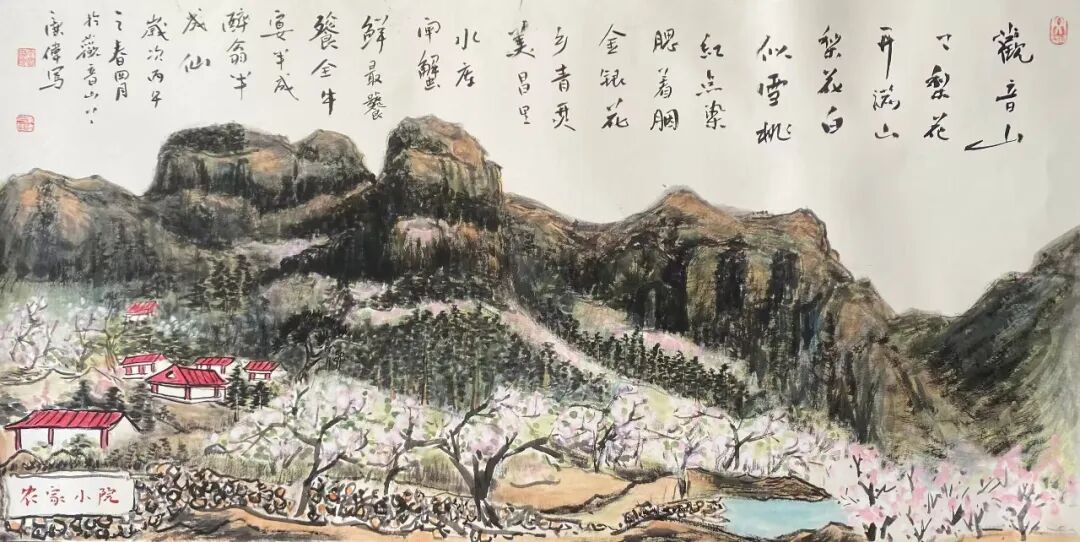 觀音山
上梨花
开满山
梨花白
似雪桃
红点染
腮着胭
金银花
乡青
美昌里
水库
闸蟹
鲜最饕
餮全牛
宴半成
醉翁半
成仙
歲次丙午
之春四月
於觀音山
康偉写
农家小院